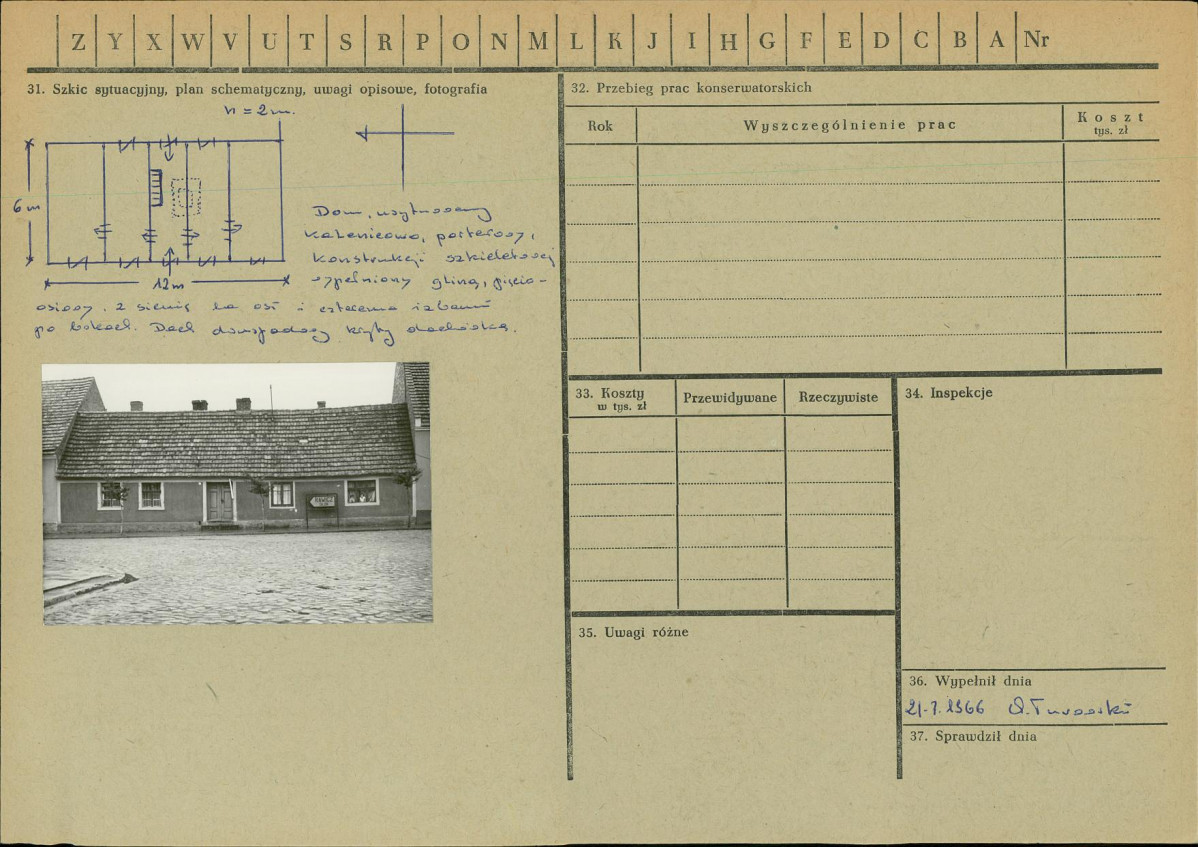 Z Y X W V U T S R P O N M L K J I H G F E D C B A Nr
31. Szkic sytuacyjny, plan schematyczny, uwagi opisowe, fotografia
n = 2 m.
6 m
12 m
Dom, usytuowany
kalenicowo, parterowy,
konstrukcji szkieletowej
wypełniony gliną, pięcio-
osiowy. z sienią na osi i czterema izbami
po bokach. Dach dwuspadowy kryty dachówką.
32. Przebieg prac konserwatorskich
Rok
Wyszczególnienie prac
Koszt
tys. zł
33. Koszty
w tys. zł
Przewidywane
Rzeczywiste
34. Inspekcje
35. Uwagi różne
36. Wypełnił dnia
21.7.1966
37. Sprawdził dnia